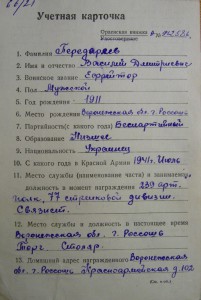 66/21
Учетная карточка
Орденская книжка
№ 942582
1. Фамилия
2. Имя и отчество Василий Дмитриевич
3. Воинское звание Ефрейтор
4. Пол Мужской
5. Год рождения 1911
6. Место рождения Воронежская обл. г. Россошь
7. Партийность (с какого года) Беспартийный
8. Образование Низшее
9. Национальность Украинец
10. С какого года в Красной Армии 1941 г. Июль
11. Место службы (наименование части) и занимаемая
должность в момент награждения 239 арт.
полк, 77 стрелковой дивизии.
Связист.
12. Место службы и должность в настоящее время
Воронежская обл. г. Россошь
Торг. Столяр.
13. Домашний адрес награжденного Воронежская
обл. г. Россошь Красноармейская д. 102